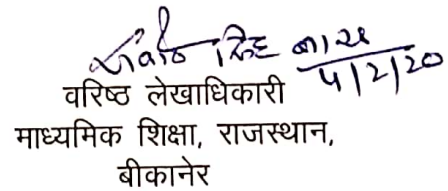 सिंह
4/2/20
वरिष्ठ लेखाधिकारी
माध्यमिक शिक्षा, राजस्थान,
बीकानेर